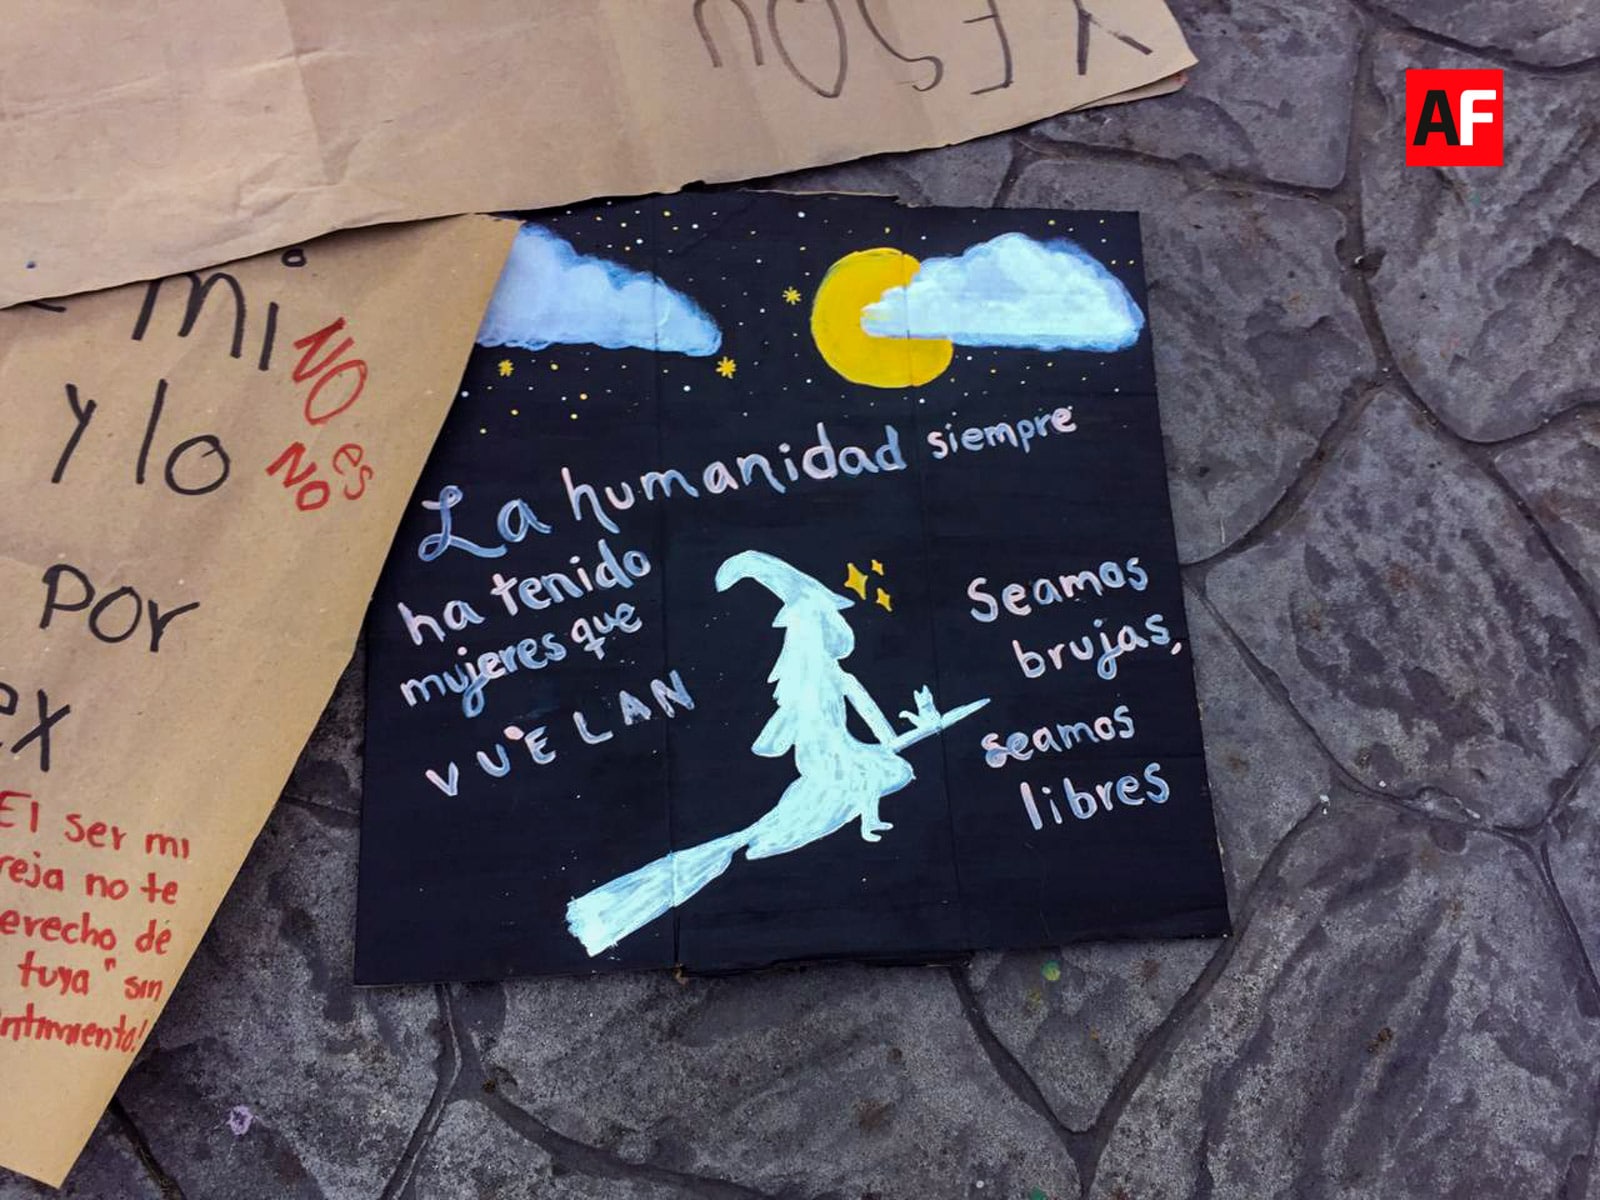 AF
mi
y lo
NO
es
NO
por
ex
El ser mi
reja no te
erecho de
tuya" sin
ntimiento!
La humanidad siempre
ha tenido
mujeres que
VUELAN
Seamos
brujas,
seamos
libres